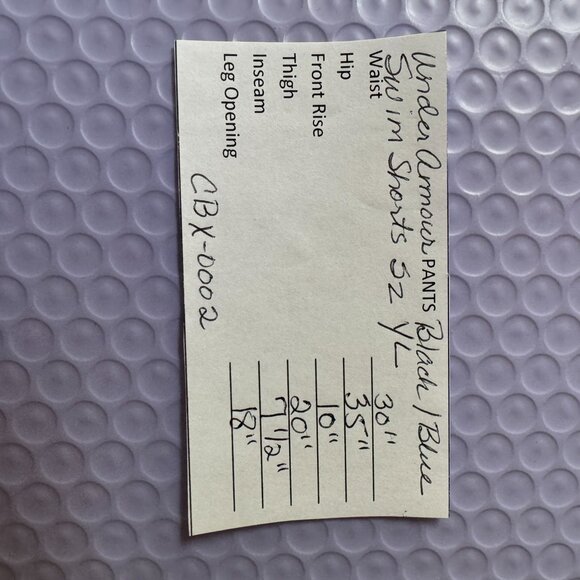 Under Armour PANTS Black / Blue
Swim Shorts Sz YL
Waist 30"
Hip 35"
Front Rise 10"
Thigh 20"
Inseam 7 1/2"
Leg Opening 18"
CBX-0002